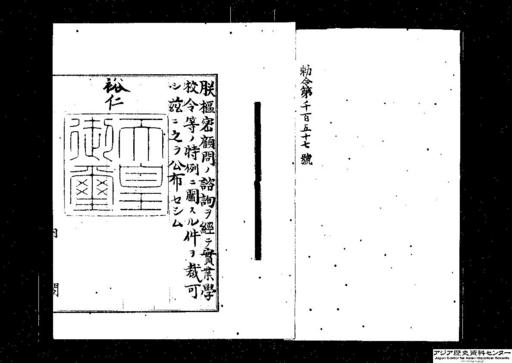 勅令第千百五十七號
朕樞密顧問ノ諮詢ヲ經テ實業學
校令等ノ特例ニ關スル件ヲ裁可
シ茲ニ之ヲ公布セシム
裕仁
天皇
御璽
内
閣
アジア歴史資料センター
Japan Center for Asian Historical Records